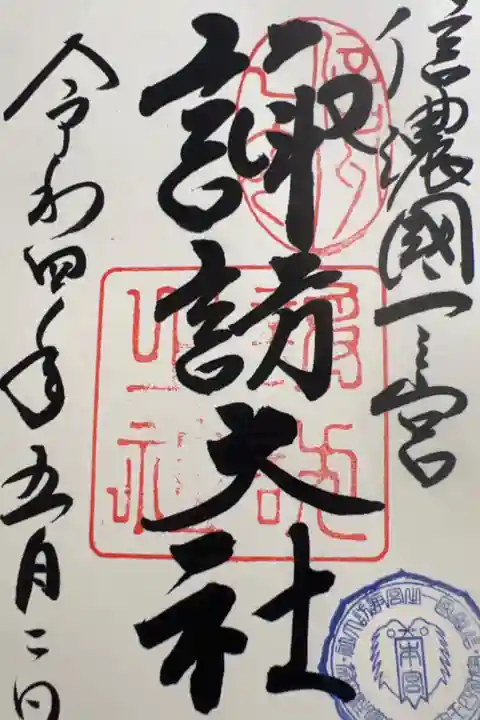 信濃國一之宮
諏訪大社
令和四年五月二日
本宮